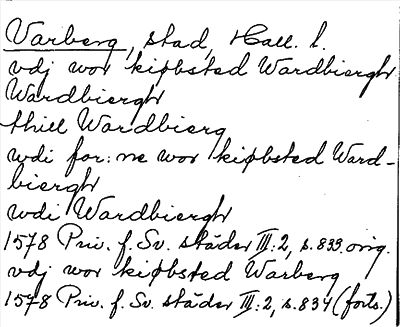 Varberg, stad, Hall. l.
vdj wor kiøbsted Wardbiergh
Wardbiergh
thill Wardbierg
wdi for: ne wor kiøbsted Ward-
biergh
wdi Wardbiergh
1578 Priv. f. Sv. städer III:2, s. 833 orig.
vdj wor kiøbsted Warberg
1578 Priv. f. Sv. städer III:2, s. 834 (forts.)